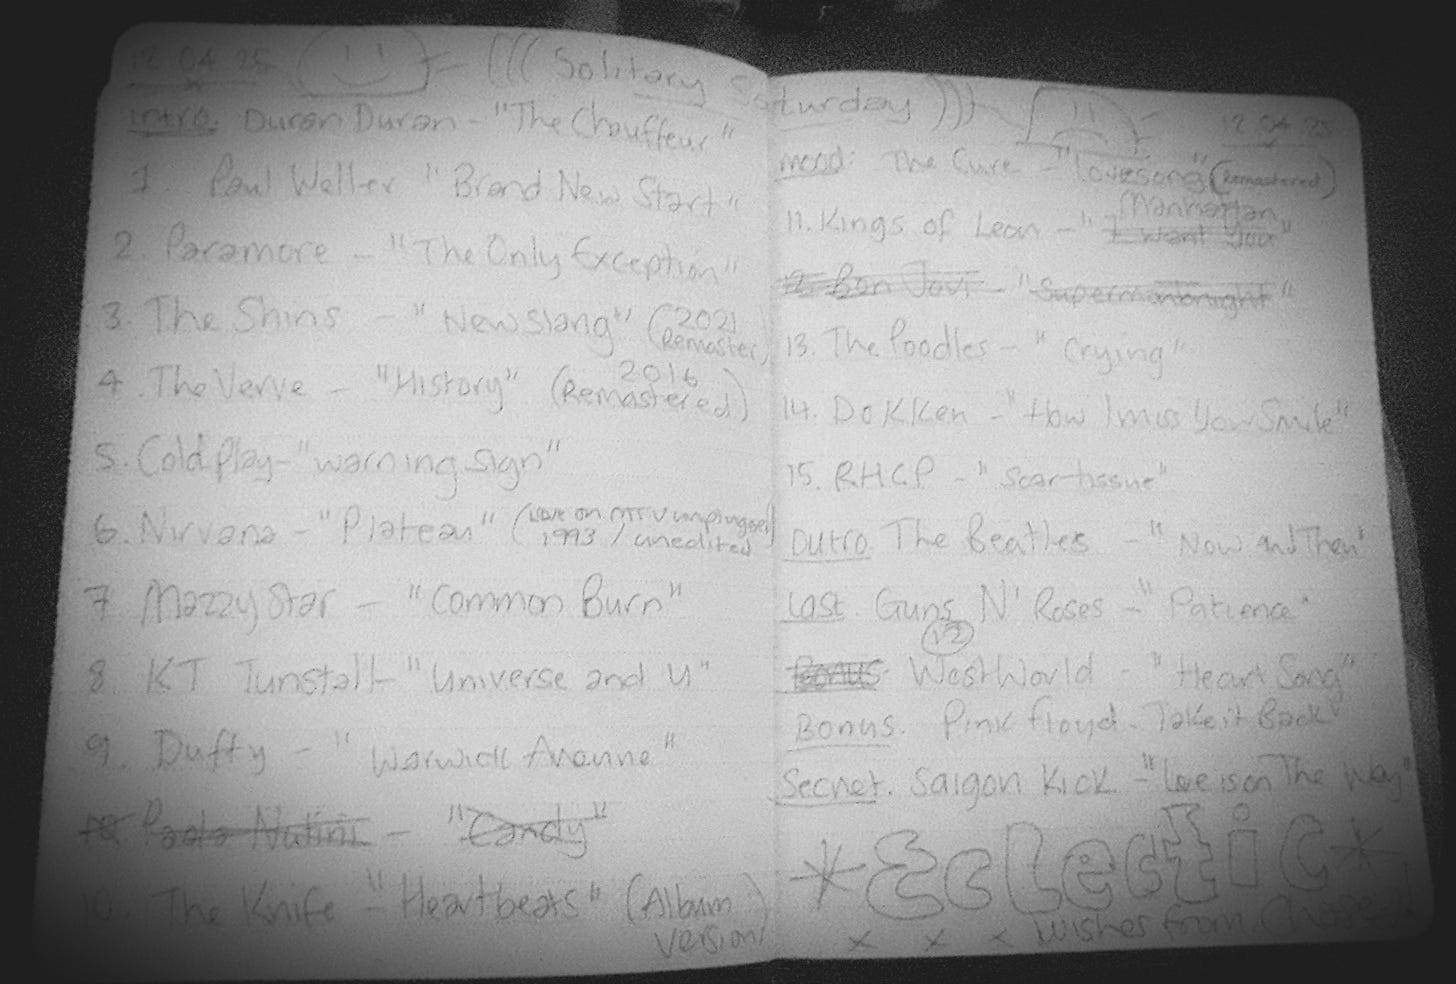 12 04 25 (((Solitary Saturday))) 12.04.25
intro. Duran Duran - "The Chauffeur"
1. Paul Weller "Brand New Start"
2. Paramore - "The Only Exception"
3. The Shins - "New Slang" (2021 Remaster)
4. The Verve - "History" (2016 Remastered)
5. ColdPlay - "warning sign"
6. Nirvana - "Plateau" (Live on MTV unplugged 1993 / unedited)
7 Mazzy Star - "Common Burn"
8 KT Tunstall - "Universe and U"
9. Duffy - "Warwick Avanue"
10 Paolo Nutini - "Candy"
10. The Knife - "Heartbeats" (Album Version)
mood: The Cure - "Lovesong" (Remastered)
Manhattan
11. Kings of Leon - "I Want You"
12 Bon Jovi - "Supermantonight"
13. The Poodles - "Crying"
14. DoKKen - "How I miss Your Smile"
15. RHCP - "Scar tissue"
Outro. The Beatles - "Now and Then"
Last. Guns N' Roses - "Patience"
12
Bonus. WestWorld - "Heart Song"
Bonus. Pink floyd - Take it Back"
Secret. Saigon Kick - "Love is on The Way"
*Eclectic*
x x x wishes from